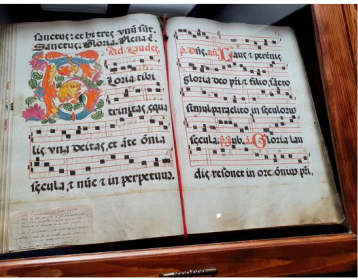 sanctus: et hi tres vnū sūt.
Sanctus. Gloria. Plena ē.
Ad Laudes
Gloria tibi
trinitas equa
lis vna deitas, et āte ōnia
secula, ⁊ nūc ⁊ in perpetuū.
Laus ⁊ perēnis
gloria deo pr̄i ⁊ filio, sācto
simul paraclito in seculorū
secula. Gloria lau
dis resonet in ore ōniuʒ pr̄i,